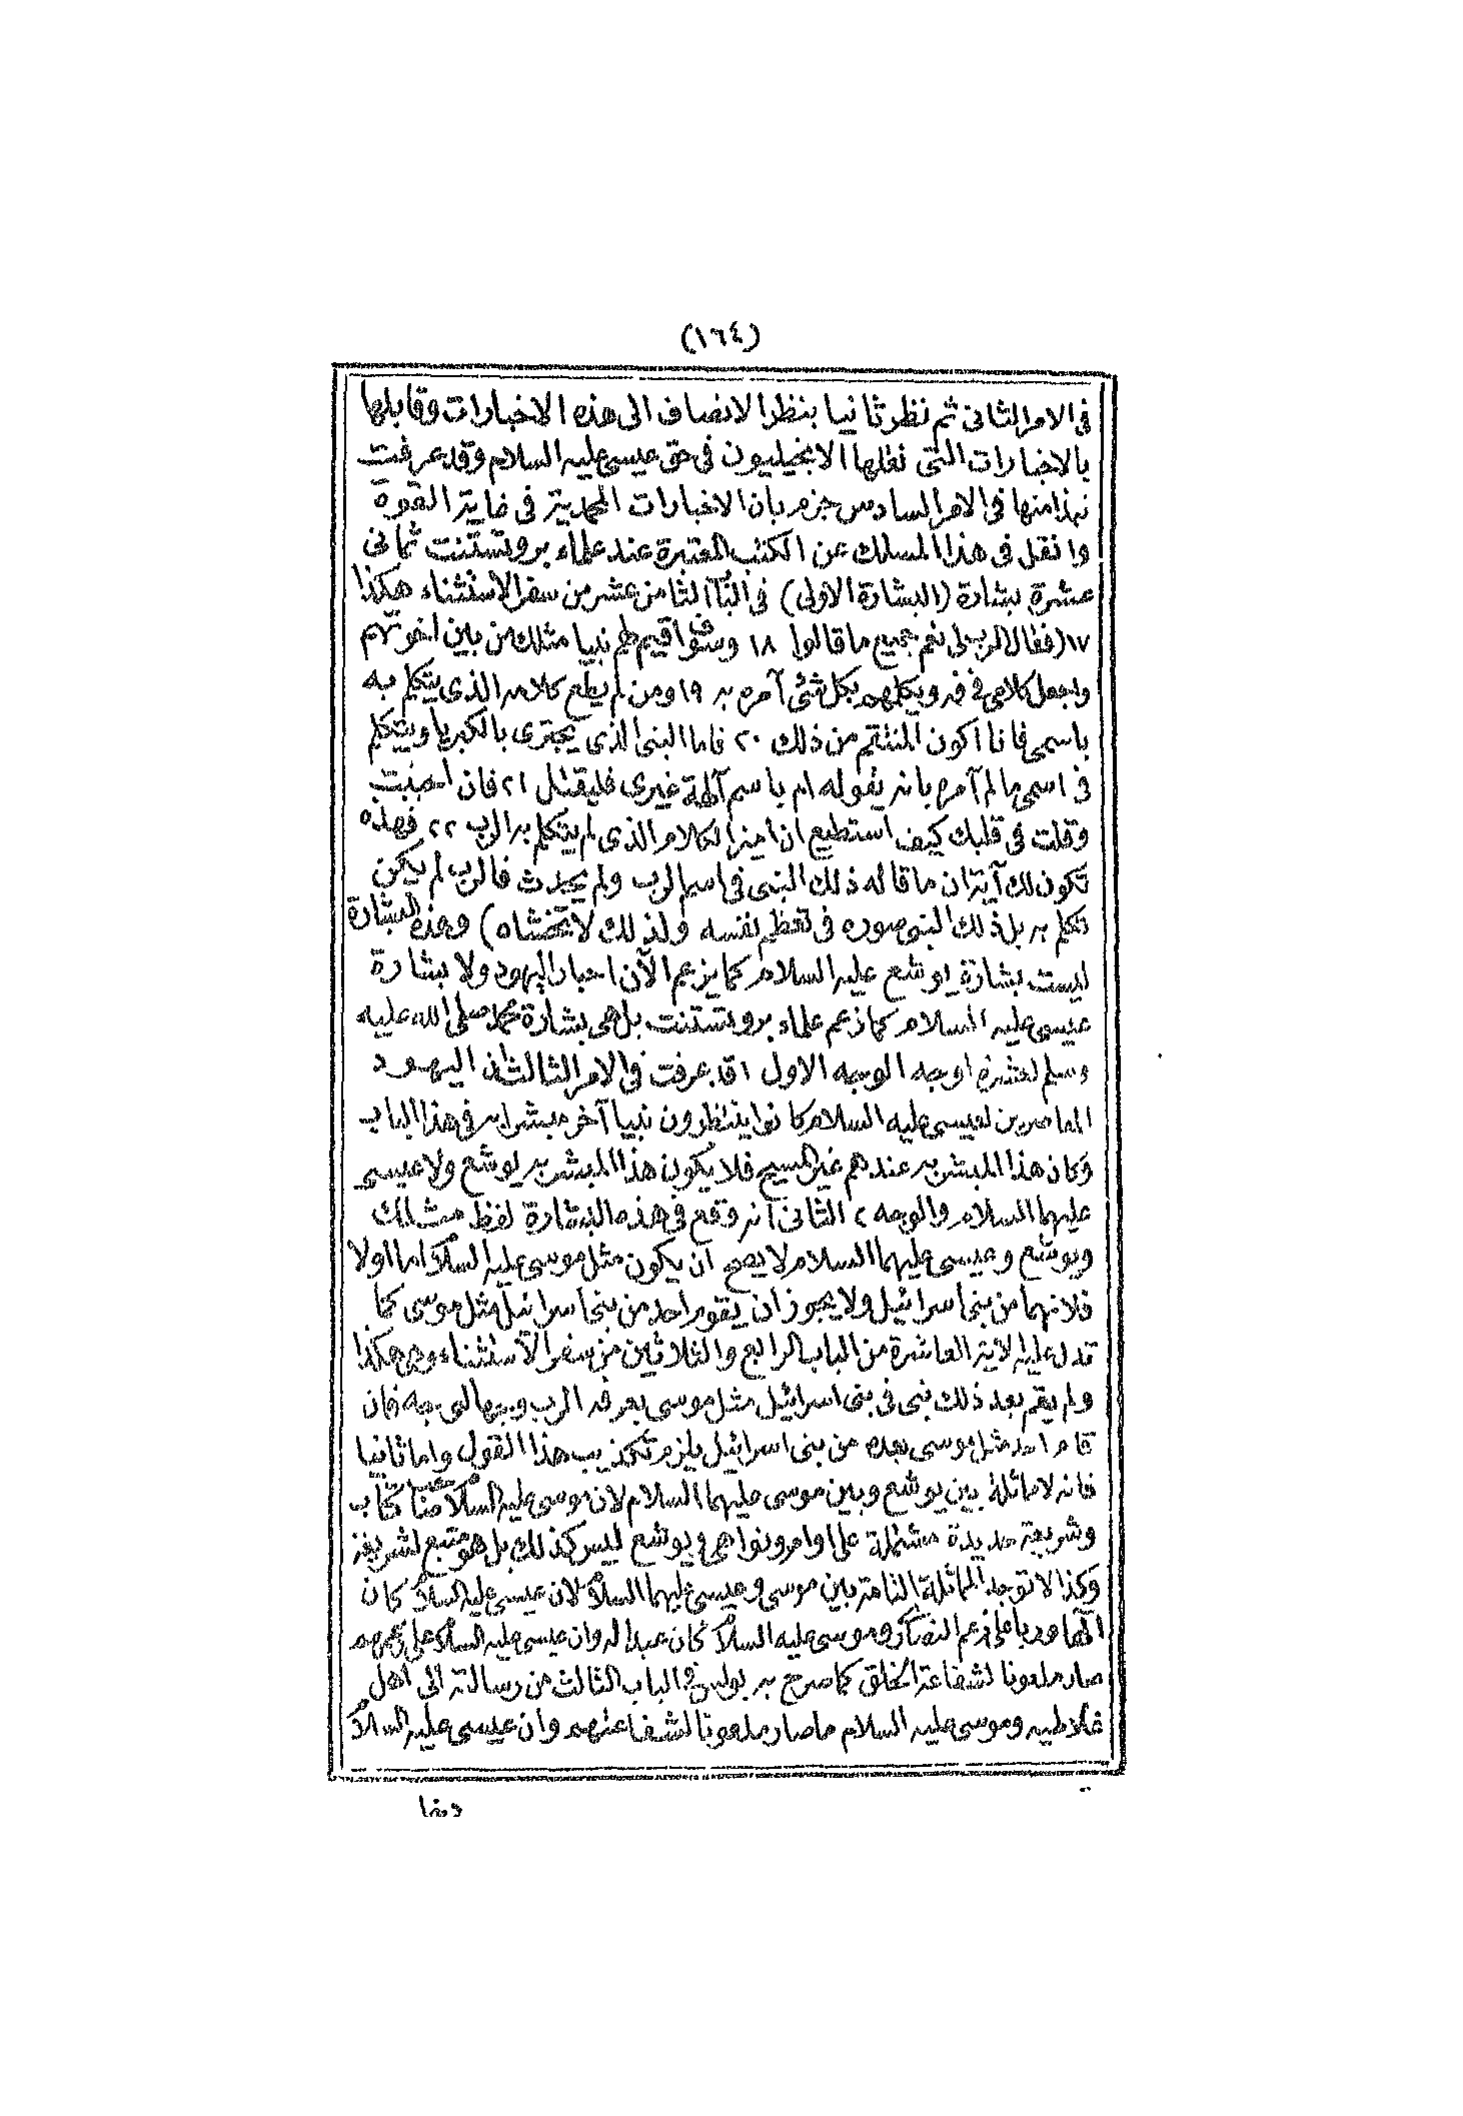 (١٦٤)
فى الامر الثانى ثم نظر ثانيا بنظر الانصاف الى هذه الاخبارات وقابلها
بالاخبارات التى نقلها الانجيليون فى حق عيسى عليه السلام وقد عرفت
نبذا منها فى الامر السادس جزم بان الاخبارات المحمدية فى غاية القوة
وانقل فى هذا المسلك عن الكتب المعتبرة عند علماء بروتستنت ثمانى
عشرة بشارة (البشارة الاولى) فى الباب الثامن عشر من سفر الاستثناء هكذا
١٧ (فقال الرب لى نعم جميع ما قالوا ١٨ وسوف اقيم لهم نبيا مثلك من بين اخوتهم
واجعل كلامى فى فمه ويكلمهم بكل شئ آمره به ١٩ ومن لم يطع كلامه الذى يتكلم به
باسمى فانا اكون المنتقم من ذلك ٢٠ فاما النبى الذى يجترى بالكبريا ويتكلم
فى اسمى ما لم آمره بانه يقوله ام باسم آلهة غيرى فليقتل ٢١ فان احببت
وقلت فى قلبك كيف استطيع ان اميز الكلام الذى لم يتكلم به الرب ٢٢ فهذه
تكون لك آية ان ما قاله ذلك النبى فى اسم الرب ولم يحدث فالرب لم يكن
تكلم به بل ذلك النبى صوره فى تعظم نفسه ولذلك لا تخشاه) وهذه البشارة
ليست بشارة يوشع عليه السلام كما يزعم الآن احبار اليهود ولا بشارة
عيسى عليه السلام كما زعم علماء بروتستنت بل هى بشارة محمد صلى الله عليه
وسلم لعشرة اوجه الوجه الاول ١ قد عرفت فى الامر الثالث ان اليهود
المعاصرين لعيسى عليه السلام كانوا ينتظرون نبيا آخر مبشرا به فى هذا الباب
وكان هذا المبشر به عندهم غير المسيح فلا يكون هذا المبشر به يوشع ولا عيسى
عليهما السلام والوجه ٢ الثانى انه وقع فى هذه البشارة لفظ مثلك
ويوشع وعيسى عليهما السلام لا يصح ان يكون مثل موسى عليه السلام اما اولا
فلانهما من بنى اسرائيل ولا يجوز ان يقوم احد من بنى اسرائيل مثل موسى كما
تدل عليه الاية العاشرة من الباب الرابع والثلاثين من سفر الاستثناء وهى هكذا
ولم يقم بعد ذلك نبى فى بنى اسرائيل مثل موسى يعرفه الرب وجها لوجه فان
قام احد مثل موسى بعده من بنى اسرائيل يلزم تكذيب هذا القول واما ثانيا
فانه لا مماثلة بين يوشع وبين موسى عليهما السلام لان موسى عليه السلام صاحب كتاب
وشريعة جديدة مشتملة على اوامر ونواهى ويوشع ليس كذلك بل هو متبع لشريعته
وكذا لا توجد المماثلة التامة بين موسى وعيسى عليهما السلام لان عيسى عليه السلام كان
الها وربا على زعم النصارى وموسى عليه السلام كان عبدا له وان عيسى عليه السلام على زعمهم
صار ملعونا لشفاعة الخلق كما صرح به بولس فى الباب الثالث من رسالته الى اهل
غلاطيه وموسى عليه السلام ما صار ملعونا لشفاعتهم وان عيسى عليه السلام